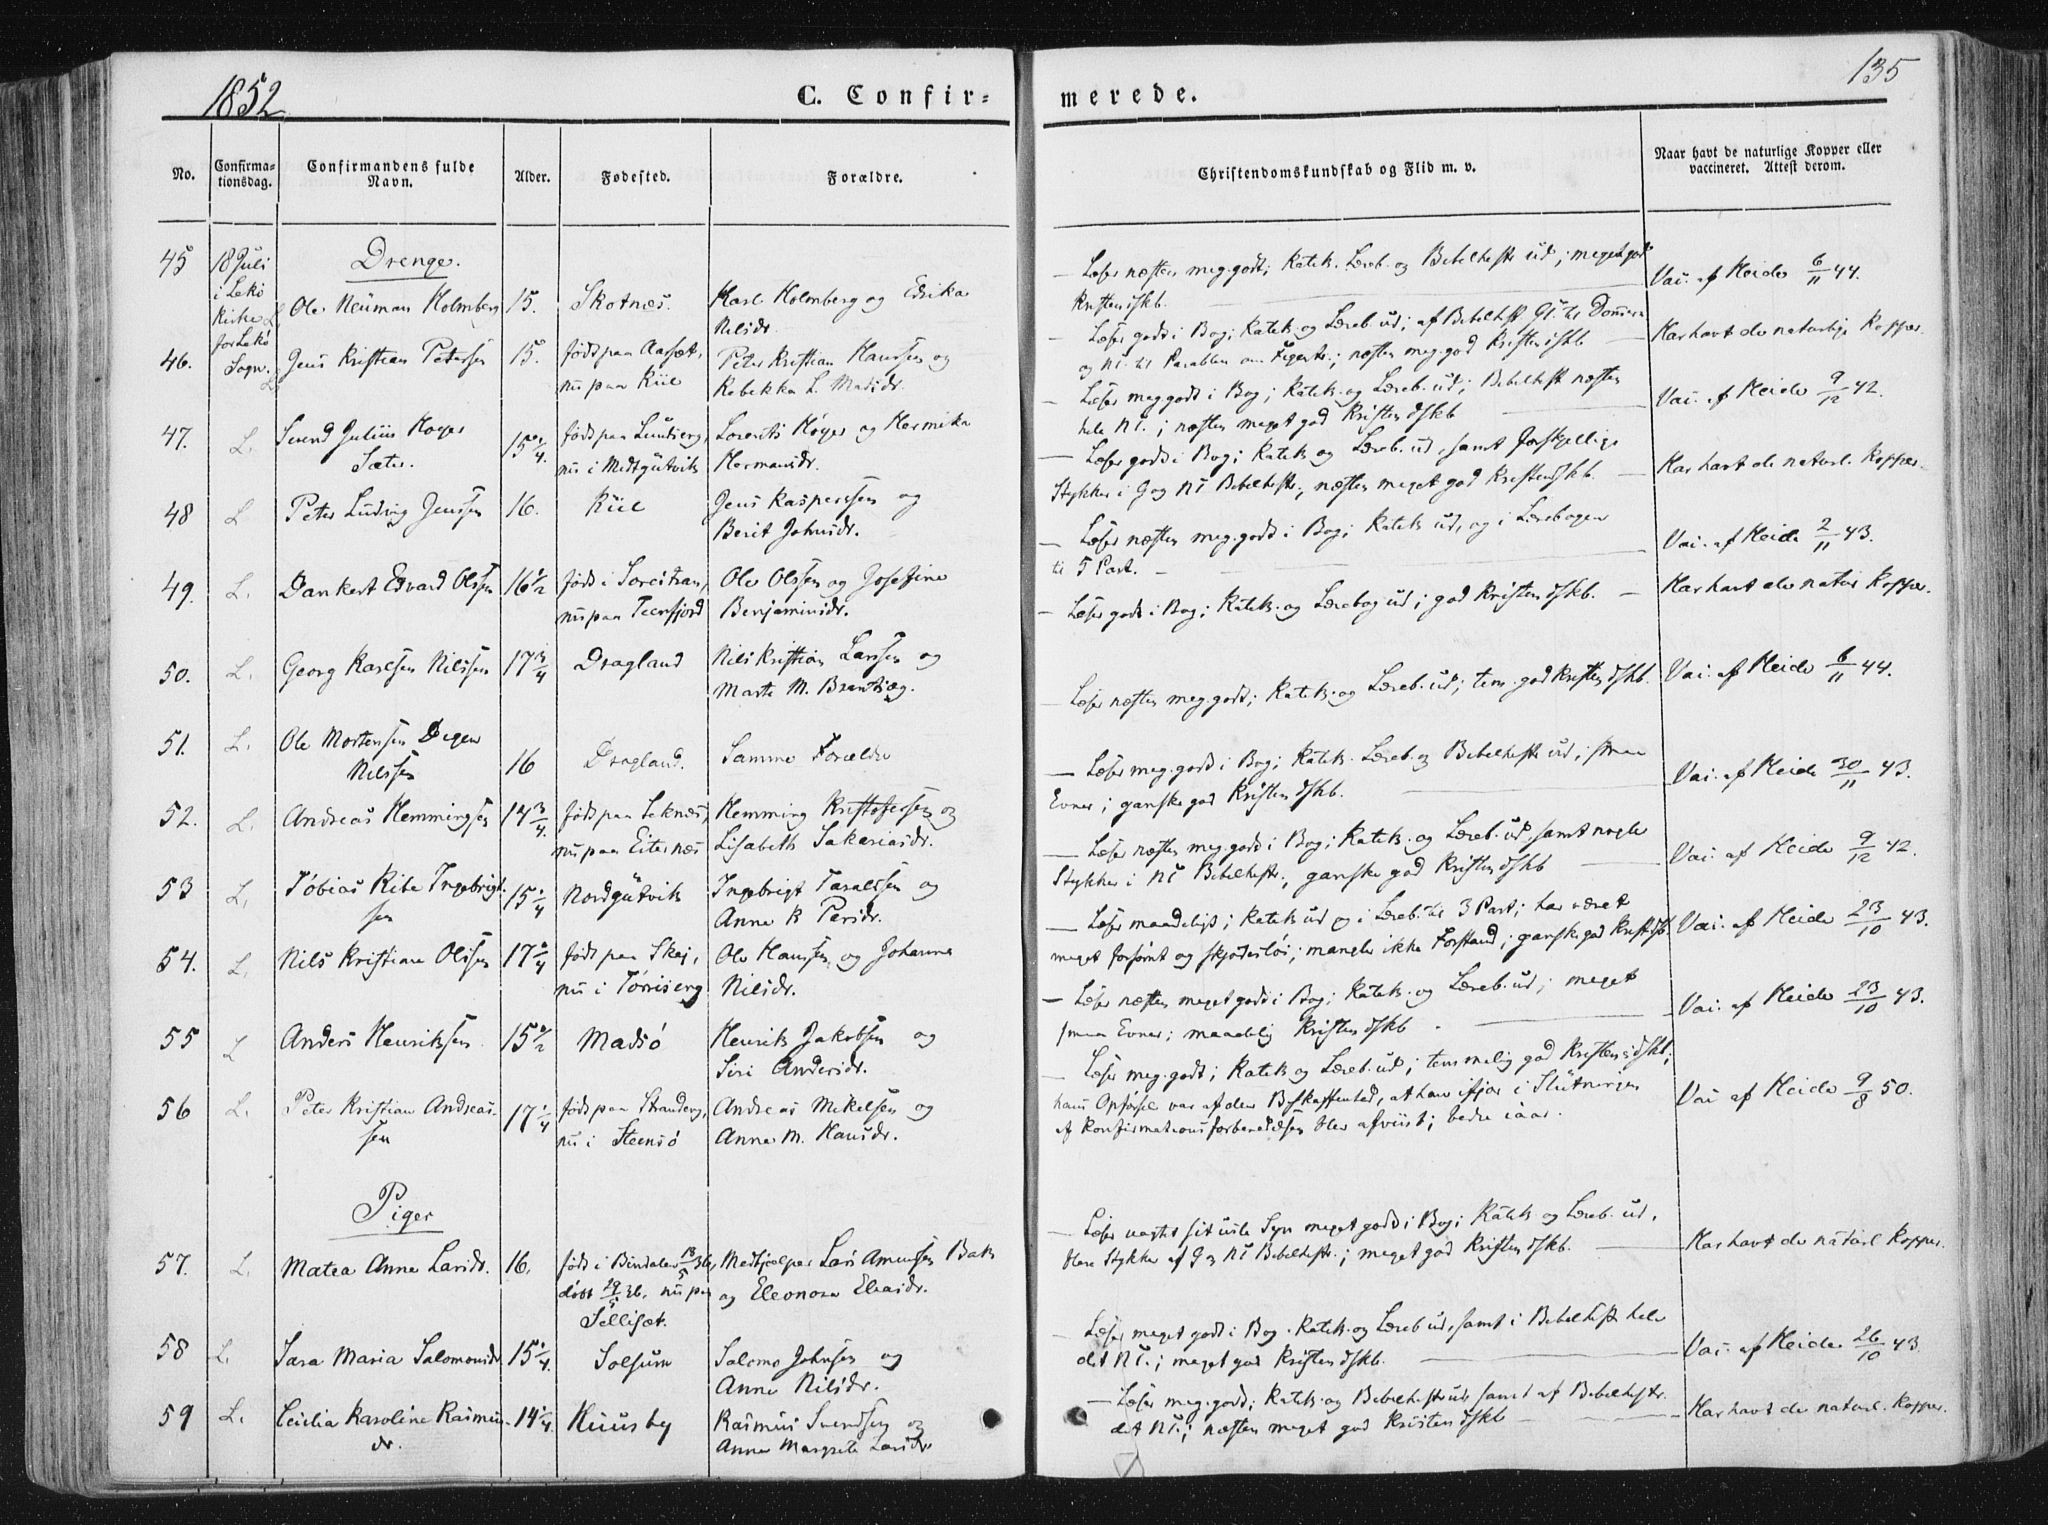 1852
C. Confir-
merede.
135
No.
Confirma-
tionsdag.
Confirmandens fulde
Navn.
Alder.
Fødested.
Forældre.
Christendomskundskab og Flid m. v.
Naar havt de naturlige Kopper eller
vaccineret. Attest derom.
45 18 Juli
i Lekö
Kirke
for Lekö
Sogn.
Drenge.
Ole Neuman Holmberg 15. Skotnæs. Karl Holmberg og Edrika
Nilsdr.
— Læser næsten meg. godt; Katek. Læreb. og Bibelhist ud; meget god
Kristendskb.
Vai. af Heide 6/11 44.
46. Jens Kristian Petersen 15. född paa Aasæt, Peter Kristian Hanssen og
nu paa Kiil Rebekka L. Madsdr.
— Læser godt i Bog; Katek. og Læreb. ud; af Bibelhist Gl. til Domme
og NT. til Parablen om Figentr.; næsten meg. god Kristendskb —
Har havt de naturlige Kopper.
47. L. Svend Julius Höyer 15 1/4. född paa Lundseng, Lorents Höyer og Hermika
Sæter. nu i Medtgutvik Hermansdr.
— Læser meg. godt i Bog; Katek. og Læreb. ud; Bibelhist næsten
hele NT.; næsten meget god Kristendskb
Vai. af Heide 9/12 42.
48 L Peter Ludvig Jenssen 16. Kiil Jens Kasperssen og
Berit Johnsdr.
— Læser godt i Bog; Katek og Læreb. ud, samt forskjellige
Stykker i G og NT Bibelhistr., næsten meget god Kristendskb. —
Har havt de naturl. Kopper.
49. L. Dankert Edvard Olssen 16 1/2 född i Torcitran, Ole Olssen og Josefine
nu paa Teenfjord Benjaminsdr.
— Læser næsten meg. godt i Bog; Katek ud, og i Lærebogen
til 5 Part. —
Vai. af Heide 2/11 43.
50. L. Georg Karlsen Nilssen 17 3/4 Dragland Nils Kristian Larssen og
Marte M. Brantsæg.
— Læser godt i Bog; Katek. og Lærebog ud; god Kristendskb. —
Har havt de natur Kopper.
51. L. Ole Mortensen Degen
Nilssen 16 Dragland. Samme Forældre
Læser næsten meg. godt; Katek. og Læreb. ud; tem. god Kristendskb.
Vai. af Heide 6/11 44.
52. L. Andreas Hemmingsen 14 3/4. född paa Leknæs, Hemming Kristofersen og
nu paa Eiternæs Lisabeth Sakariasdr.
— Læser meg. godt i Bog; Katek. Læreb. og Bibelhistr ud; smaa
Evner; ganske god Kristendskb.
Vai. af Heide 30/11 43.
53 L. Tobias Ribe Ingebrigt-
sen 15 1/4 Nordgutvik Ingebrigt Taraldsen og
Anne B Persdr.
— Læser næsten meg. godt i Bog; Katek. og Læreb. ud, samt nogle
Stykker i NT Bibelhistr., ganske god Kristendskb
Vai. af Heide 9/12 42.
54. L. Nils Kristian Olssen 17 1/4 född paa Skei, Ole Hanssen og Johanna
nu i Torriseng Nilsdr.
— Læser maadeligt; Katek ud og i Læreb. til 3 Part; har været
meget forsömt og skjödeslös; mangler ikke Forstand; ganske god Kristdskb.
Vai. af Heide 23/10 43.
55 L Anders Henriksen 15 1/2 Madsö Henrik Jakobsen og
Siri Andersdr.
— Læser næsten meget godt i Bog; Katek. og Læreb. ud; meget
smaa Evner; maadelig Kristendskb.
Vai. af Heide 23/10 43.
56 L. Peter Kristian Andreas-
sen 17 1/4 född paa Strandeng, Andreas Mikelsen og
nu i Steensö Anne M. Hansdr.
— Læser meg. godt; Katek og Læreb. ud; temmelig god Kristendskb;
hans Opförsel var af den Beskaffenhed, at han ifjor i Slutningen
af Konfirmationsforberedelsen blev afviist; bedre iaar.
Vai. af Heide 9/8 50.
Piger
57. L. Matea Anne Larsdr. 16. född i Bindalen 13/5 36, Medhjelper Lars Amunsen Bak
döbt 29/5 36. nu paa og Eleonora Eliasdr.
Sellisæt.
— Læser uagtet sit usle Syn meget godt i Bog; Katek og Læreb. ud,
flere Stykker af G og NT Bibelhistr.; meget god Kristendskb.
Har havt de naturl Kopper.
58 L. Sara Maria Salomonsdr. 15 1/4. Solsum Salomo Johnsen og
Anne Nilsdr.
— Læser meget godt i Bog. Katek. og Læreb ud, samt i Bibelhist hele
det NT.; meget god Kristendskb.
Vai. af Heide 26/10 43.
59 L. Cecilia Karoline Rasmus-
dr. 14 1/4. Huusby Rasmus Svendsen og
Anne Margrete Larsdr.
— Læser meg. godt; Katek. og Bibelhistr ud, samt af Bibelhistr.
det NT.; næsten meget god Kristendskb —
Har havt de naturl. Kopper.